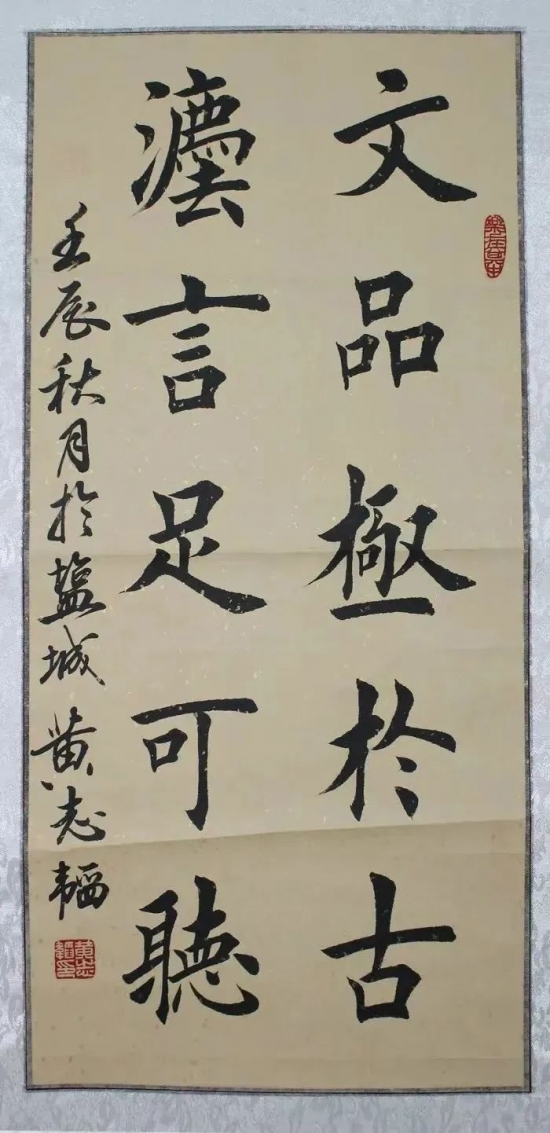 文品極於古
灋言足可聽
壬辰秋月於鹽城黄志韜